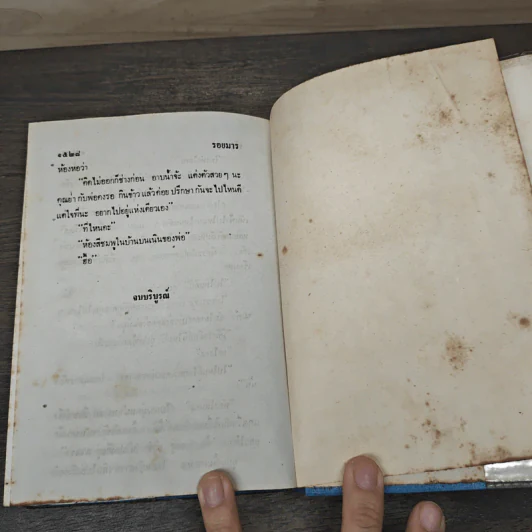 ๑๕๒๘ รอยมาร
ห้องหอว่า
"คิดไม่ออกก็ช่างก่อน อาบน้ำจ้ะ แต่งตัวสวย ๆ นะ
คุณย่า กับพ่อคงรอ กินข้าว แล้วค่อย ปรึกษา กันจะ ไปไหนดี
แต่ใจพี่นะ อยากไปอยู่แห่งเดียวเอง"
"ที่ไหนคะ"
"ห้องสีชมพูในบ้านบนเนินของพ่อ"
"ฮื้อ"
จบบริบูรณ์